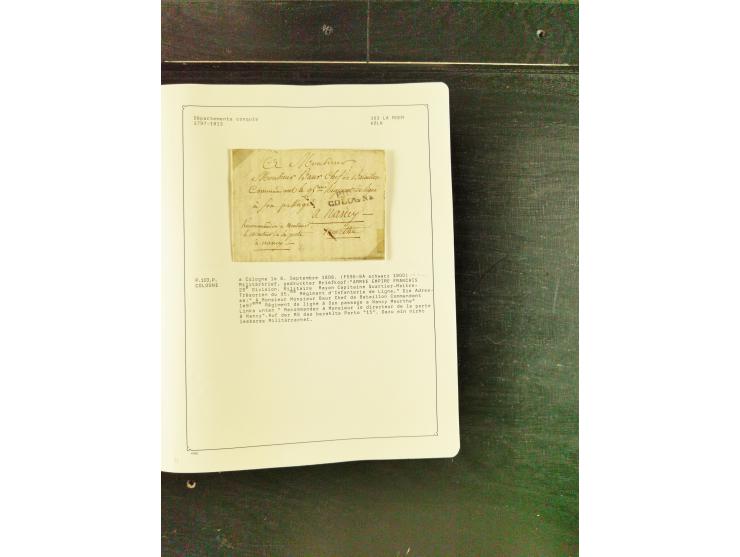 Départements conquis
1797-1813
103 LA ROER
KÖLN
A Monsieur
Monsieur Baur Chef de Bataillon
Commandant le 95me Regiment de ligne
à son passage
COLOGNE
a Nancy
Recommandée a Monsieur
le directeur de la poste
Meurthe
a Nancy
P.103.P.
COLOGNE
a Cologne le 6. Septembre 1808. (P598-8A schwarz 1900)
Militärbrief, gedruckter Briefkopf:"ARMEE EMPIRE FRANCAIS
Division. Militaire Mayen Capitaine Quartier-Maitre-
Trésorien du 95.me Régiment d'Infanterie de Ligne." Die Adres-
se:" A Monsieur Monsieur Baur Chef de Bataillon Commandant
Régiment de ligne à Son passage a Nancy Meurthe"
Links unten " Recommander à Monsieur le directeur de la porte
à Nancy".Auf der RS das bezahlte Porto "15". Dazu ein nicht
lesbares Militärrachet.